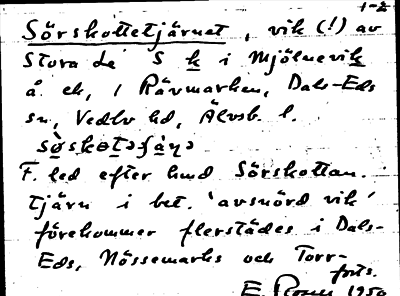 1-2
Sörskottetjärnet, vik (!) av
Stora Le S k i Mjölnevik
å. ek, i Rävmarken, Dals-Eds
sn, Vedbo hd, Älvsb. l.
F. led efter hmd Sörskottan.
tjärn i bet. 'avsnörd vik'
förekommer flerstädes i Dals-
Eds, Nössemarks och Torr-
forts.
E 1950